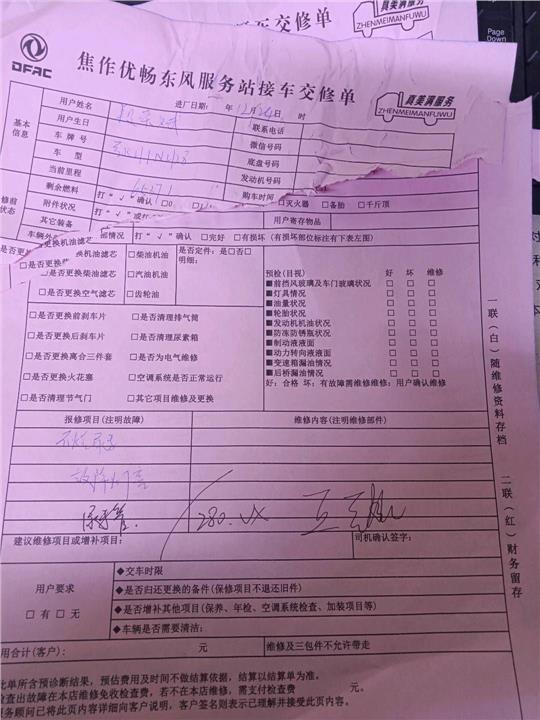 示交修单
真美满服务
ZHENMEIMANFUWU
Page
Down
DFAC
焦作优畅东风服务站接车交修单
真美满服务
ZHENMEIMANFUWU
基本信息
用户姓名
进厂日期: 年12月24日 时
用户生日
联系电话
车牌号
微信号码
车型
底盘号码
当前里程
发动机号码
剩余燃料
购车时间
修前状态
附件状况
打"√"确认 □0
□灭火器 □备胎 □千斤顶
其它装备
打"√"或打
用户寄存物品
车辆外
部情况
打"√"确认 □完好 □有损坏(有损坏部位标注有下表左图)
□是否更换机油滤芯
□是否更换柴油滤芯
□是否更换空气滤芯
□柴油机油
□汽油机油
□齿轮油
是否定件: 是□否□
明细:
预检(目视) 好 坏 维修
■前挡风玻璃及车门玻璃状况 □ □ □
■灯具情况 □ □ □
■油量状况 □ □ □
■轮胎状况 □ □ □
■发动机机油状况 □ □ □
■防冻防锈瓶状况 □ □ □
■制动液液面 □ □ □
■动力转向液液面 □ □ □
■变速箱漏油情况 □ □ □
■后桥漏油情况 □ □ □
好: 合格 坏: 有故障需维修维修: 用户确认维修
□是否更换前刹车片 □是否清理排气筒
□是否更换后刹车片 □是否清理尿素箱
□是否更换离合三件套 □是否为电气维修
□是否更换火花塞 □空调系统是否正常运行
□是否清理节气门 □其它项目维修及更换
报修项目(注明故障)
维修内容(注明维修部件)
280.
建议维修项目或增补项目:
司机确认签字:
用户要求
□有 □无
◆交车时限
◆是否归还更换的备件(保修项目不退还旧件)
◆是否增补其他项目(保养、年检、空调系统检查、加装项目等)
◆车辆是否需要清洁:
用合计(客户): 元
维修及三包件不允许带走
此单所含预诊断结果,预估费用及时间不做结算依据,结算以结算单为准。
检查出故障在本店维修免收检查费,若不在本店维修,需支付检查费 元。
务顾问已将此页内容详细向客户说明,客户签名则表示已理解并接受此页内容。
一联(白)随维修资料存档
二联(红)财务留存